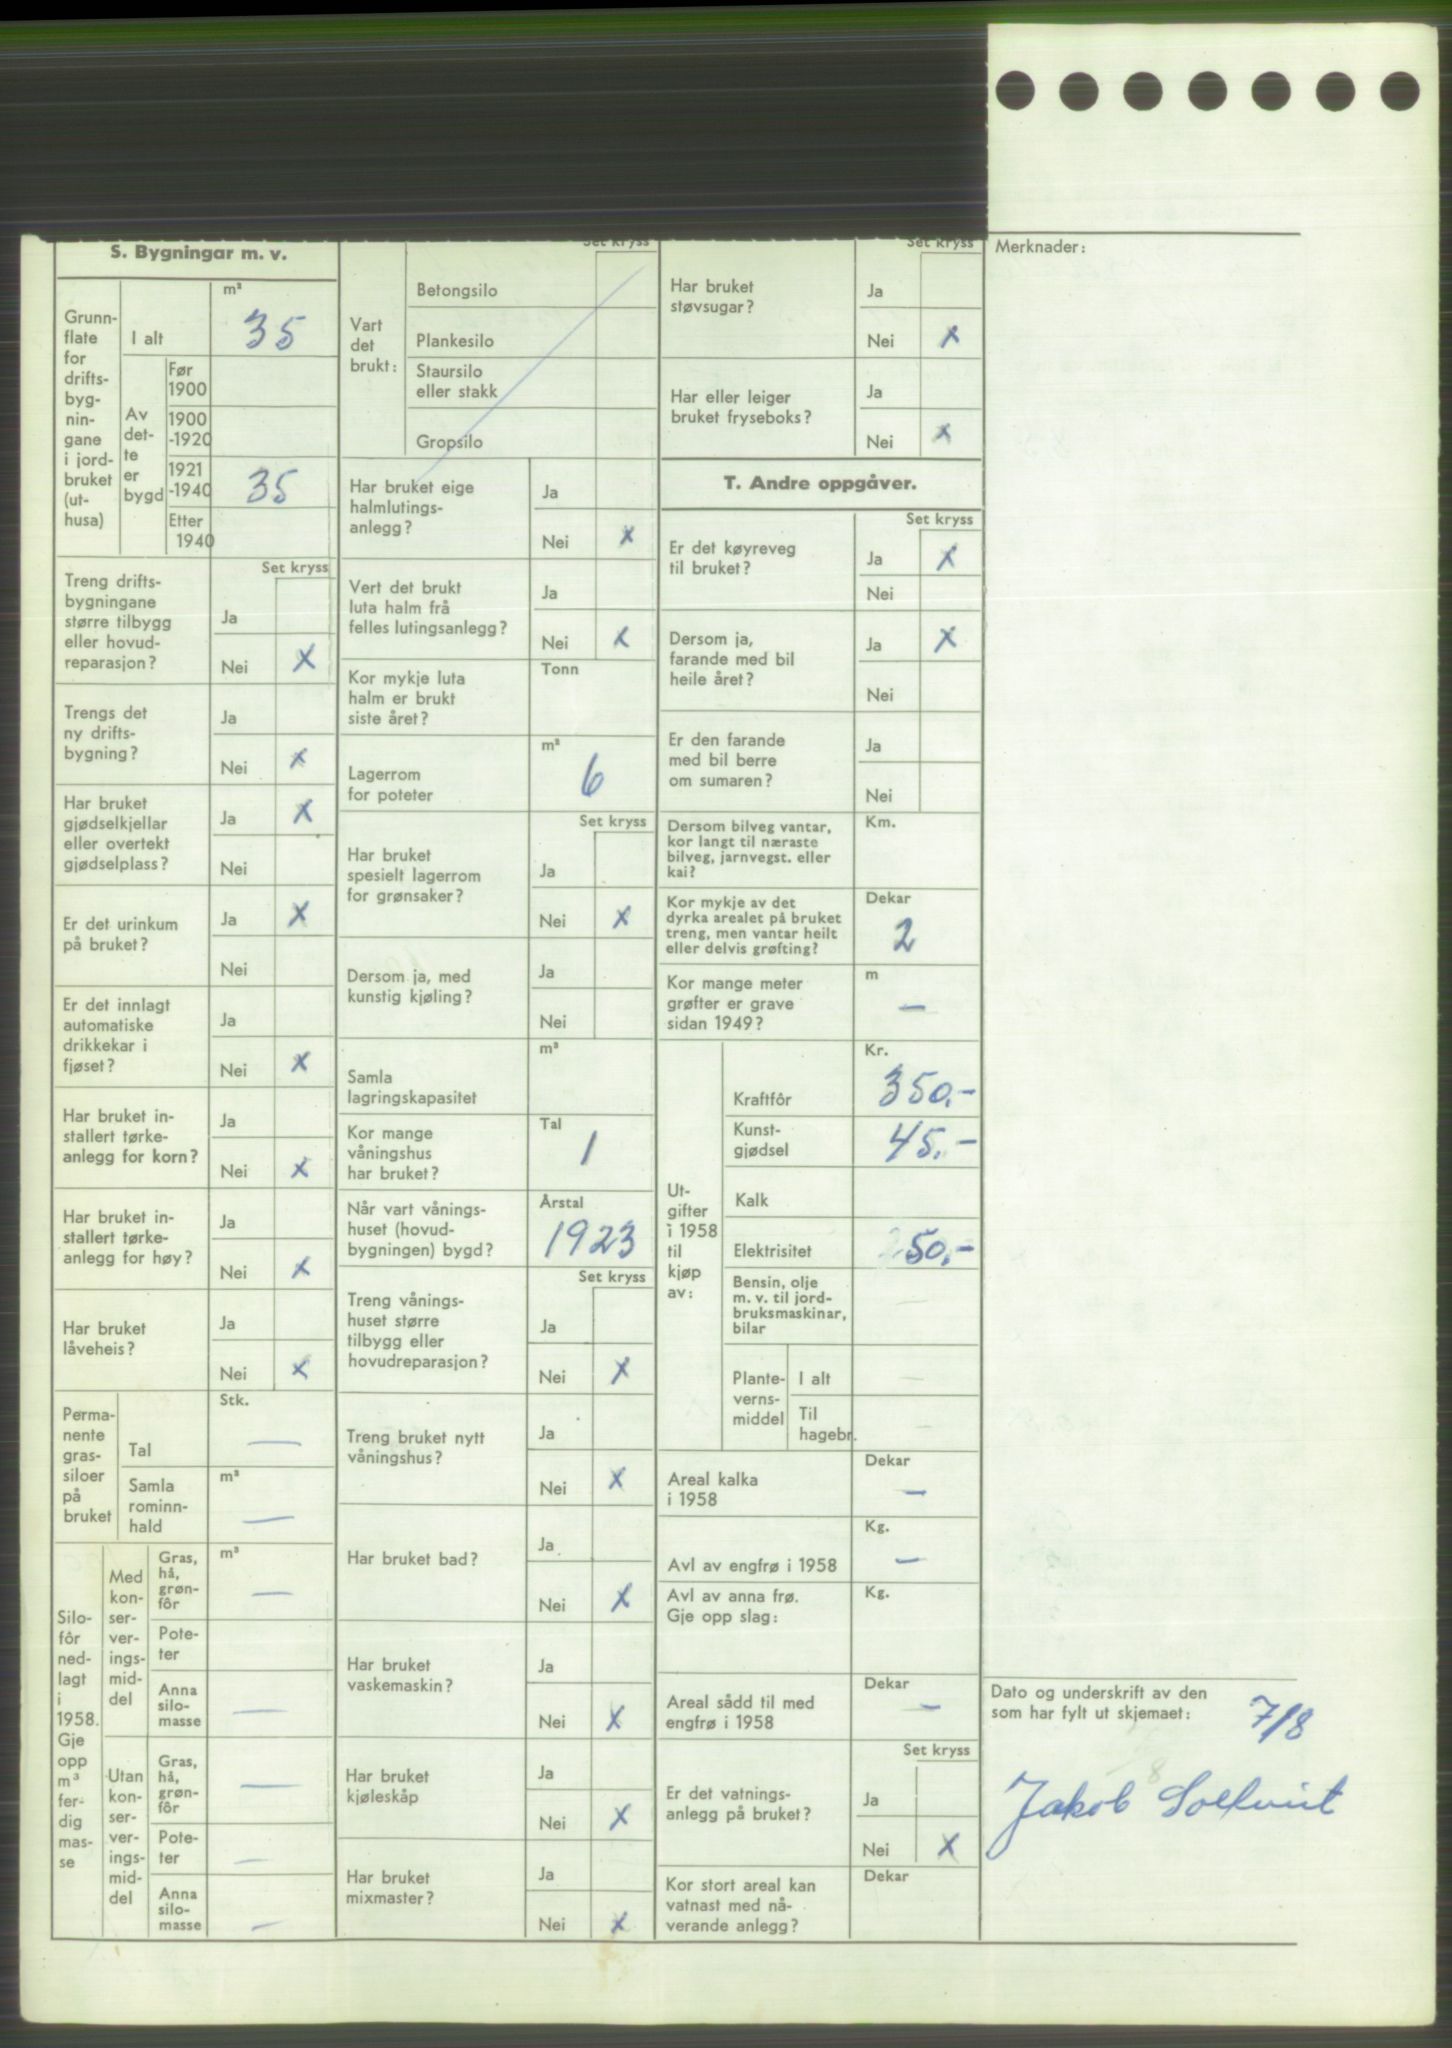 S. Bygningar m. v.
Grunn-
flate
for
drifts-
byg-
nin-
gane
i jord-
bruket
(ut-
husa)
I alt
m²
35
Av
det-
te
er
bygd
Før
1900
1900
-1920
1921
-1940
35
Etter
1940
Set kryss
Treng drifts-
bygningane
større tilbygg
eller hovud-
reparasjon?
Ja
Nei x
Trengs det
ny drifts-
bygning?
Ja
Nei x
Har bruket
gjødselkjellar
eller overtekt
gjødselplass?
Ja x
Nei
Er det urinkum
på bruket?
Ja x
Nei
Er det innlagt
automatiske
drikkekar i
fjøset?
Ja
Nei x
Har bruket in-
stallert tørke-
anlegg for korn?
Ja
Nei x
Har bruket in-
stallert tørke-
anlegg for høy?
Ja
Nei x
Har bruket
låveheis?
Ja
Nei x
Perma-
nente
gras-
siloer
på
bruket
Tal
Stk.
—
Samla
rominn-
hald
m³
—
Silo-
fôr
ned-
lagt
i
1958.
Gje
opp
m³
fer-
dig
mas-
se
Med
kon-
ser-
ver-
ings-
mid-
del
Gras,
hå,
grøn-
fôr
m³
—
Pote-
ter
Anna
silo-
masse
—
Utan
kon-
ser-
ver-
ings-
mid-
del
Gras,
hå,
grøn-
fôr
—
Pote-
ter
—
Anna
silo-
masse
—
Set kryss
Vart
det
brukt:
Betongsilo
Plankesilo
Staursilo
eller stakk
Gropsilo
Har bruket eige
halmlutings-
anlegg?
Ja
Nei x
Vert det brukt
luta halm frå
felles lutingsanlegg?
Ja
Nei x
Kor mykje luta
halm er brukt
siste året?
Tonn
Lagerrom
for poteter
m³
6
Set kryss
Har bruket
spesielt lagerrom
for grønsaker?
Ja
Nei x
Dersom ja, med
kunstig kjøling?
Ja
Nei
Samla
lagringskapasitet
m³
Kor mange
våningshus
har bruket?
Tal
1
Når vart vånings-
huset (hovud-
bygningen) bygd?
Årstal
1923
Set kryss
Treng vånings-
huset større
tilbygg eller
hovudreparasjon?
Ja
Nei x
Treng bruket nytt
våningshus?
Ja
Nei x
Har bruket bad?
Ja
Nei x
Har bruket
vaskemaskin?
Ja
Nei x
Har bruket
kjøleskåp
Ja
Nei x
Har bruket
mixmaster?
Ja
Nei x
Set kryss
Har bruket
støvsugar?
Ja
Nei x
Har eller leiger
bruket fryseboks?
Ja
Nei x
T. Andre oppgåver.
Set kryss
Er det køyreveg
til bruket?
Ja x
Nei
Dersom ja,
farande med bil
heile året?
Ja x
Nei
Er den farande
med bil berre
om sumaren?
Ja
Nei
Dersom bilveg vantar,
kor langt til næraste
bilveg, jarnvegst. eller
kai?
Km.
Kor mykje av det
dyrka arealet på bruket
treng, men vantar heilt
eller delvis grøfting?
Dekar
2
Kor mange meter
grøfter er grave
sidan 1949?
m
—
Ut-
gifter
i 1958
til
kjøp
av:
Kr.
Kraftfôr
350,-
Kunst-
gjødsel
45,-
Kalk
Elektrisitet
50,-
Bensin, olje
m. v. til jord-
bruksmaskinar,
bilar
—
Plante-
verns-
middel
I alt
—
Til
hagebr.
—
Areal kalka
i 1958
Dekar
—
Avl av engfrø i 1958
Kg.
—
Avl av anna frø.
Gje opp slag:
Kg.
Areal sådd til med
engfrø i 1958
Dekar
—
Set kryss
Er det vatnings-
anlegg på bruket?
Ja
Nei x
Kor stort areal kan
vatnast med nå-
verande anlegg?
Dekar
Merknader:
Dato og underskrift av den
som har fylt ut skjemaet:
7/8
Jakob